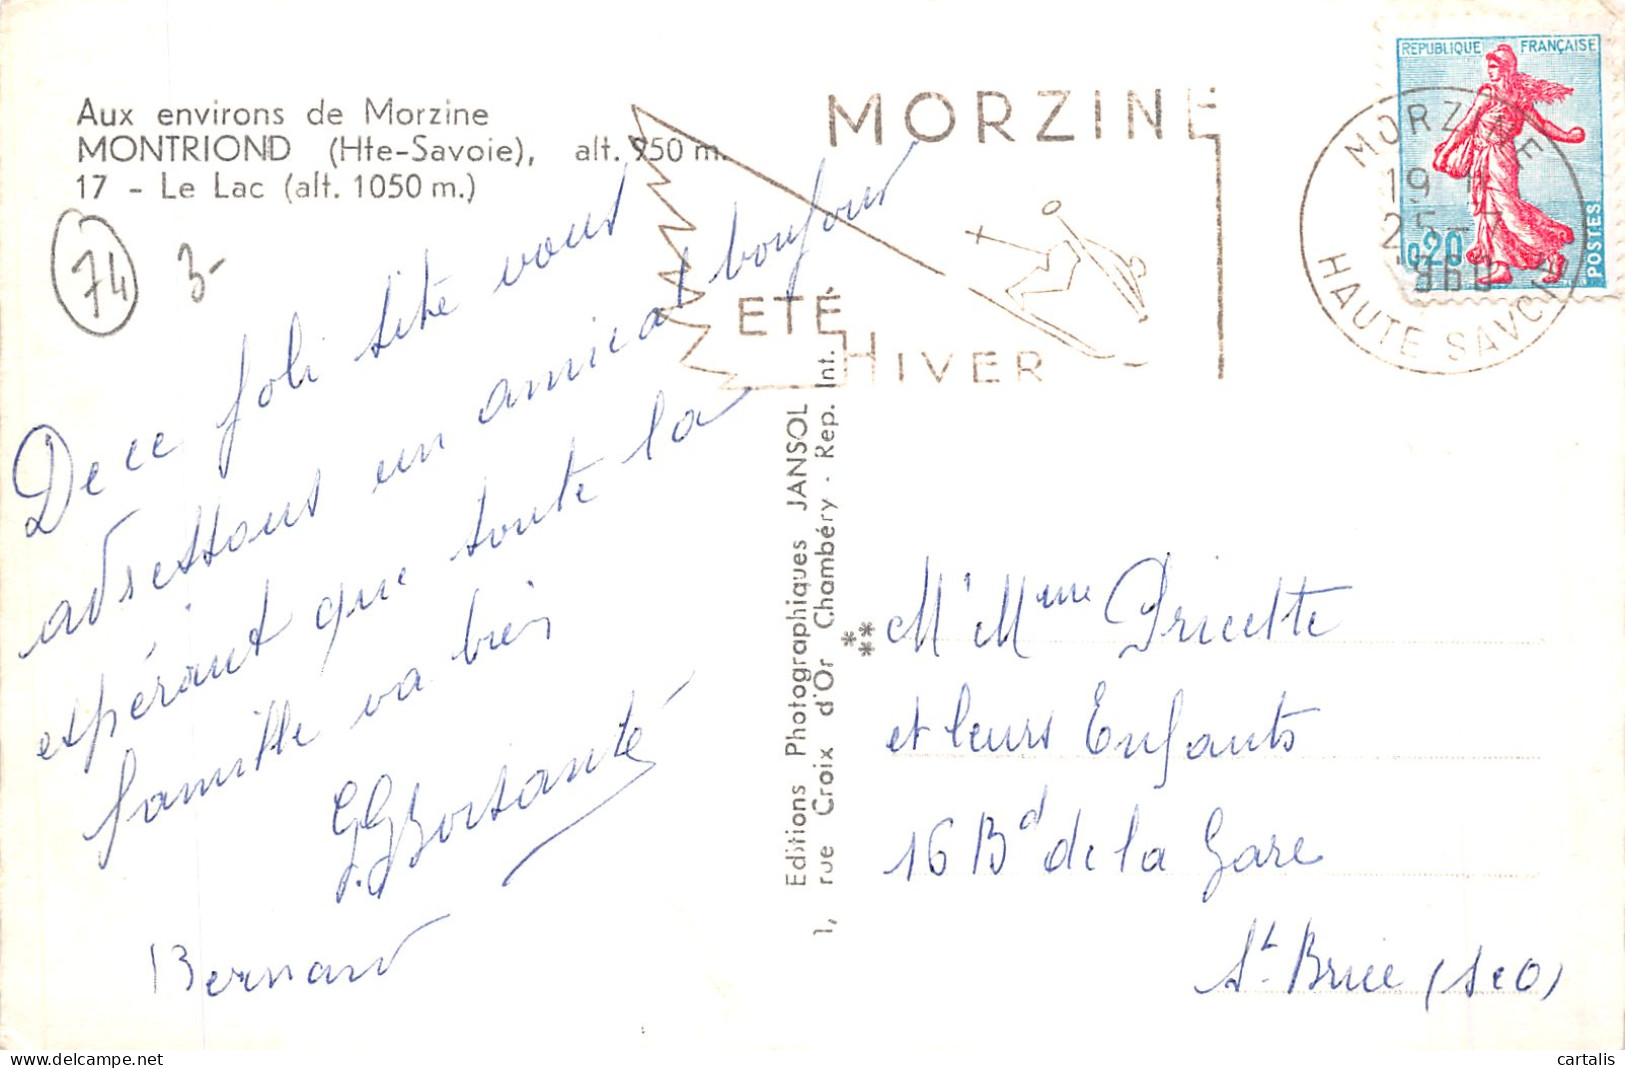 Aux environs de Morzine
MONTRIOND (Hte-Savoie), alt. 950 m.
17 - Le Lac (alt. 1050 m.)
74
3-
De ce joli site vous
adressons un amical bonjour
espérant que toute la
famille va bien
Bernard
MORZINE
ETÉ
HIVER
REPUBLIQUE FRANÇAISE
0,20
POSTES
MORZINE
19 H
25-7
1960
HAUTE SAVOIE
Editions Photographiques JANSOL
1, rue Croix d'Or Chambéry - Rep. Int.
**
**
Mr Mme Pricette
et leurs Enfants
16 Bd de la Gare
St. Brice (S e O)
cartalis